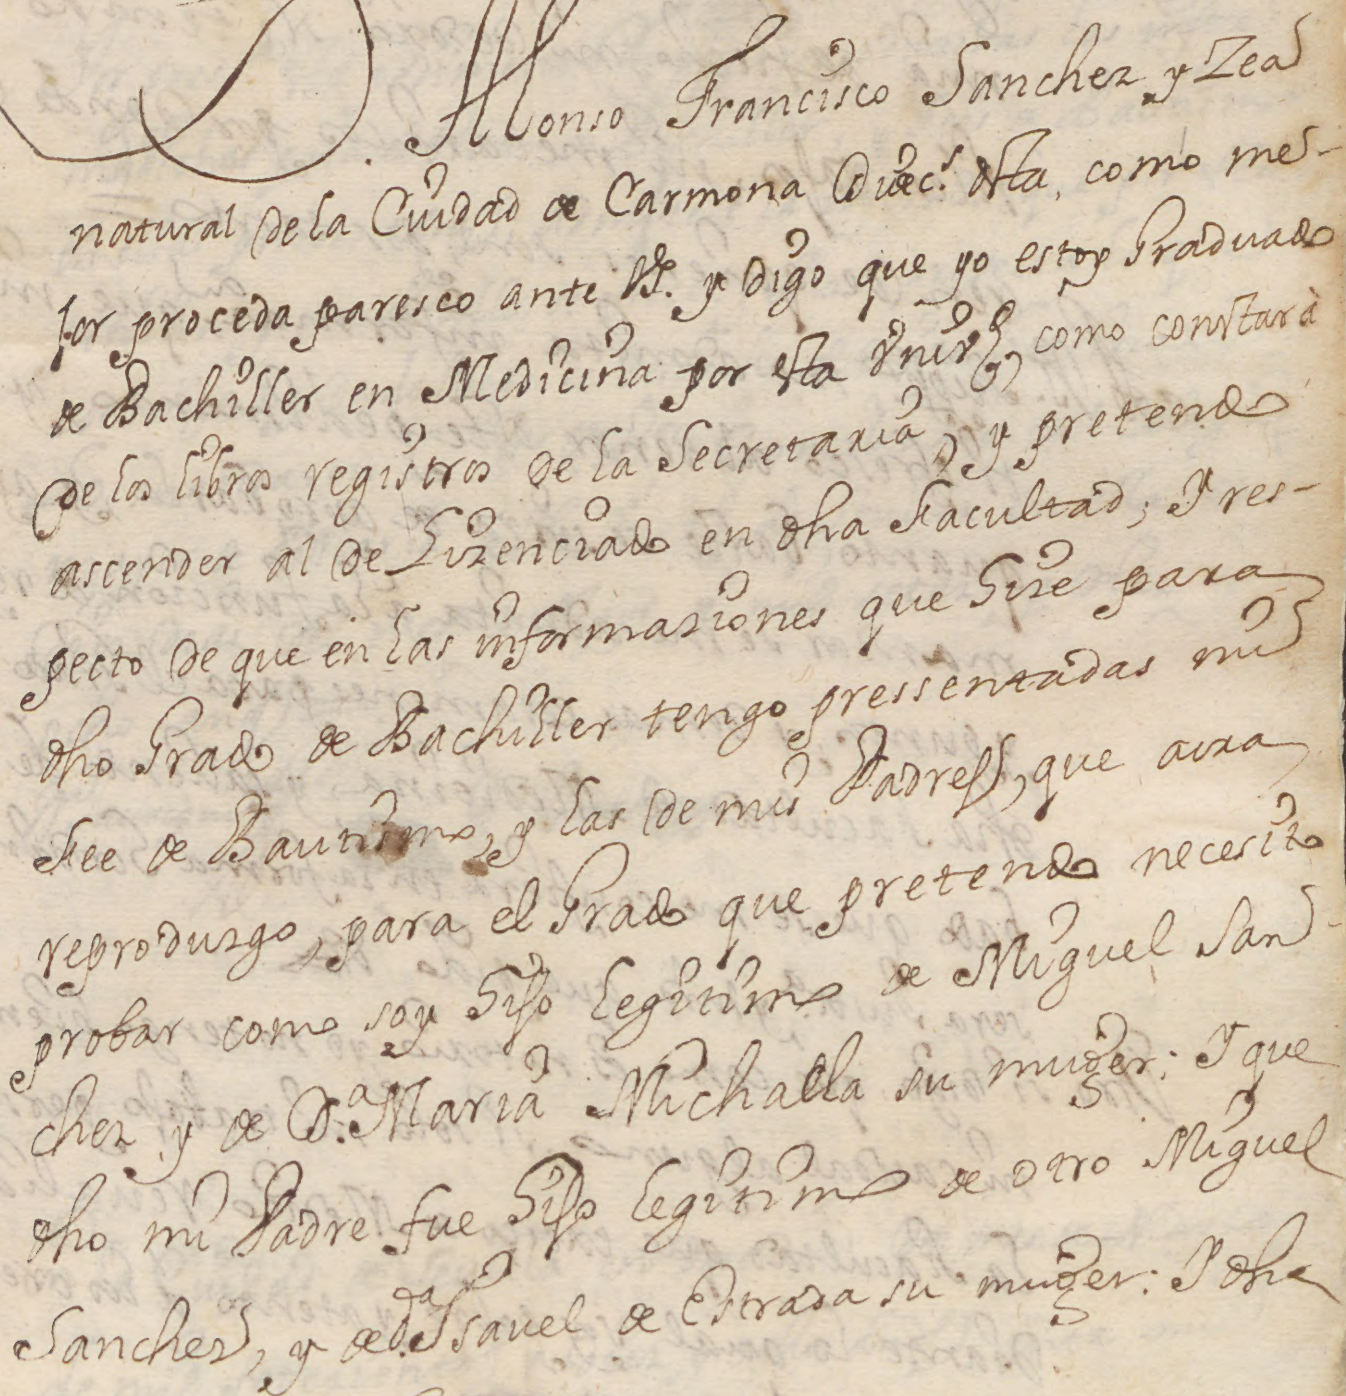 D. Alonso Francisco Sanchez y Zea
natural de la Ciudad de Carmona Diœc.s desta, como me-
jor proceda paresco ante VS. y digo que yo estoy Graduado
de Bachiller en Medicina por esta Vnivd, como constarà
de los libros registros de la Secretaria, y pretendo
ascender al de Lizenciado en dha Facultad; Y res-
pecto de que en las informaziones que hize para
dho Grado de Bachiller tengo pressentadas mi
Fee de Bautismo, y las de mis Padress, que aora
reproduzgo, para el Grado que pretendo necesito
probar como soy hijo legitimo de Miguel San-
chez y de D.a Maria Michaela su muger: Y que
dho mi Padre fue hijo legitimo de otro Miguel
Sanchez, y de d.a Ysavel de Estrada su muger: Y dha